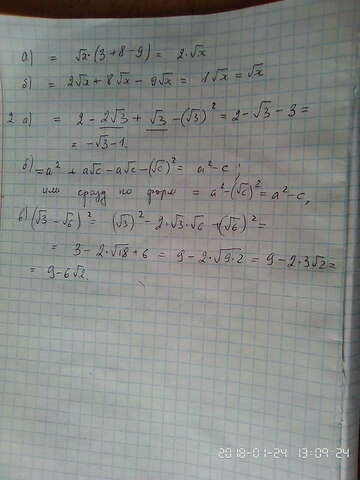 а) = √x·(3+8-9) = 2·√x
б) = 2√x+8√x-9√x = 1√x=√x
2 а) = 2-2√3+√3-(√3)²=2-√3-3=
= -√3-1.
б) =a²+a√c-a√c-(√c)²= a²-c;
или сразу по форм = a²-(√c)²=a²-c,
в) (√3-√6)²= (√3)²-2·√3·√6+(√6)²=
= 3-2·√18+6 = 9-2·√9·2 = 9-2·3√2=
= 9-6√2.
2018-01-24 13:09:24